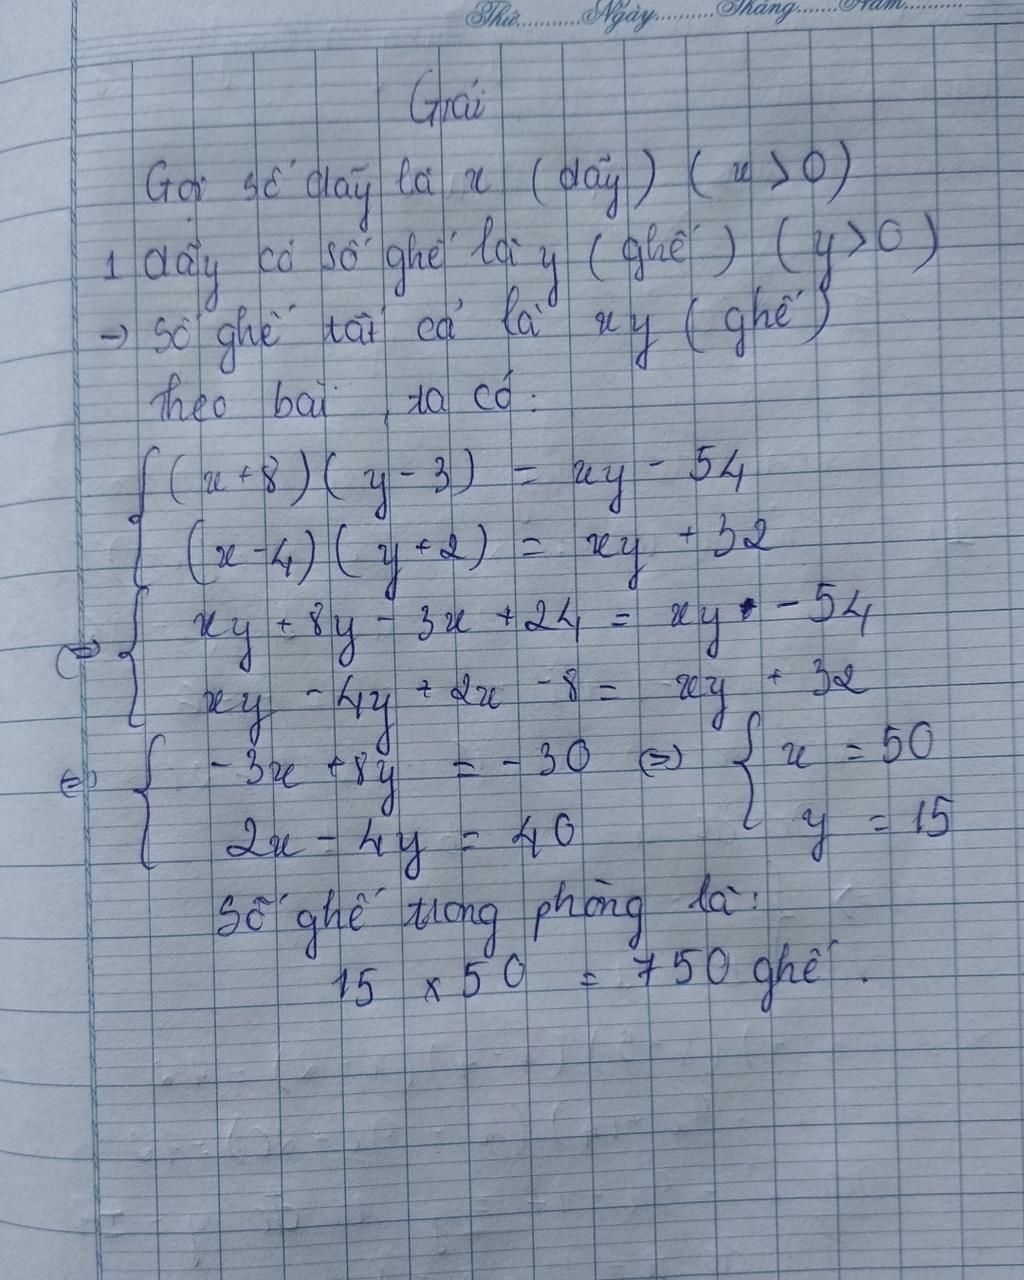 Thứ............Ngày............Tháng.......Năm............
Giải
Gọi số dãy là x (dãy) (x > 0)
1 dãy có số ghế là y (ghế) (y > 0)
→ Số ghế tất cả là xy (ghế)
Theo bài ta có:
{ (x + 8)(y - 3) = xy - 54
(x - 4)(y + 2) = xy + 32
⇔ { xy + 8y - 3x + 24 = xy - 54
xy - 4y + 2x - 8 = xy + 32
⇔ { -3x + 8y = -30 ⇔ { x = 50
2x - 4y = 40 y = 15
Số ghế trong phòng là:
15 x 50 = 750 ghế.